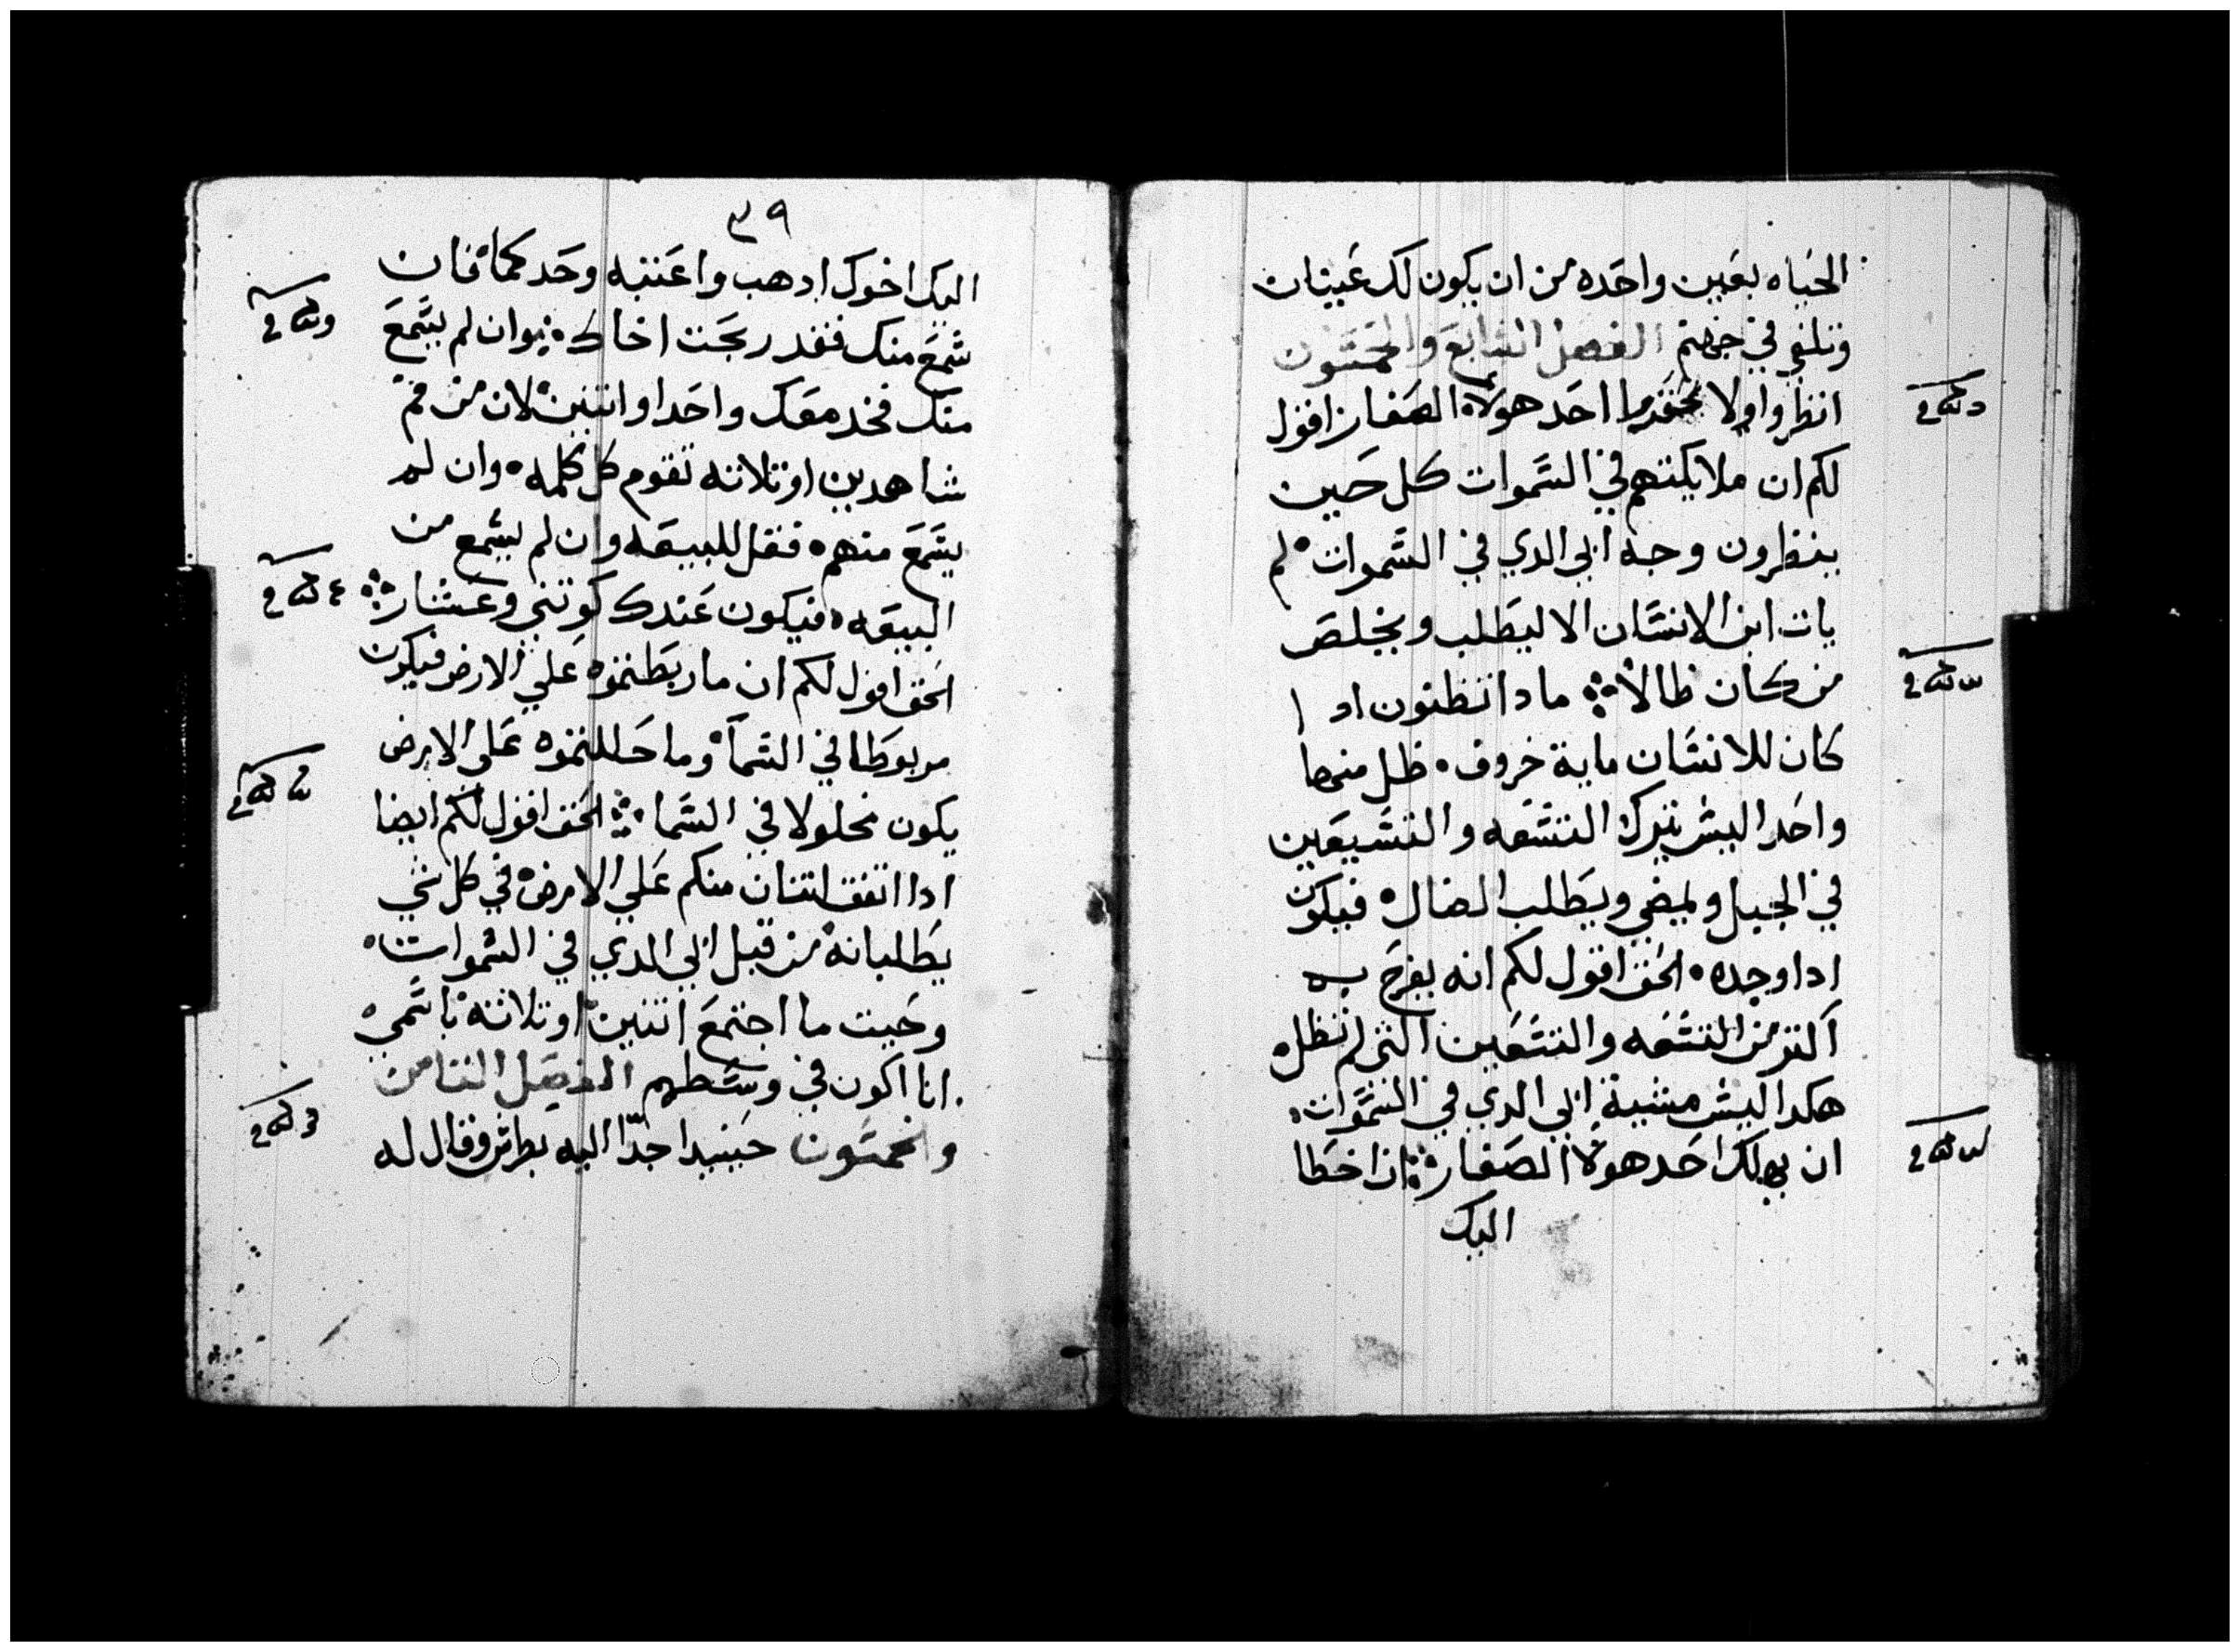 الحياه بعين واحده من ان يكون لك عينان
وتلقي في جهنم الفصل السابع والخمسون
انظروا ولا تحقروا احد هولاء الصغار اقول
لكم ان ملايكتهم في السموات كل حين
ينظرون وجه ابي الدي في السموات لم
يات ابن الانسان الا ليطلب ويخلص
من كان ظالا مادا تظنون ادا
كان للانسان ماية خروف ظل منها
واحد اليس يترك التسعه والتسعين
في الجبل ويمضي ويطلب الضال فيكون
ادا وجده الحق اقول لكم انه يفرح به
اكتر من التسعه والتسعين التي لم تظل
هكدا ليس مشية ابي الدي في السموات
ان يهلك احد هولاء الصغار ان اخطا
اليك
٣٩
اليك اخوك ادهب واعتبه وحدكما فان
سمع منك فقد ربحت اخاك وان لم يسمع
منك فخد معك واحدا او اتنين لان من فم
شاهدين او تلاته تقوم كل كلمه وان لم
يسمع منهم فقل للبيعه وان لم يسمع من
البيعه فيكون عندك كوتني وعشار
الحق اقول لكم ان ما ربطتموه علي الارض فيكون
مربوطا في السما وما حللتموه علي الارض
يكون محلولا في السما الحق اقول لكم ايضا
ادا اتفق اتنان منكم علي الارض في كل شي
يطلبانه من قبل ابي الدي في السموات
وحيت ما اجتمع اتنين او تلاته باسمي
انا اكون في وسطهم الفصل التامن
والخمسون حينيد اجا اليه بطرس وقال له